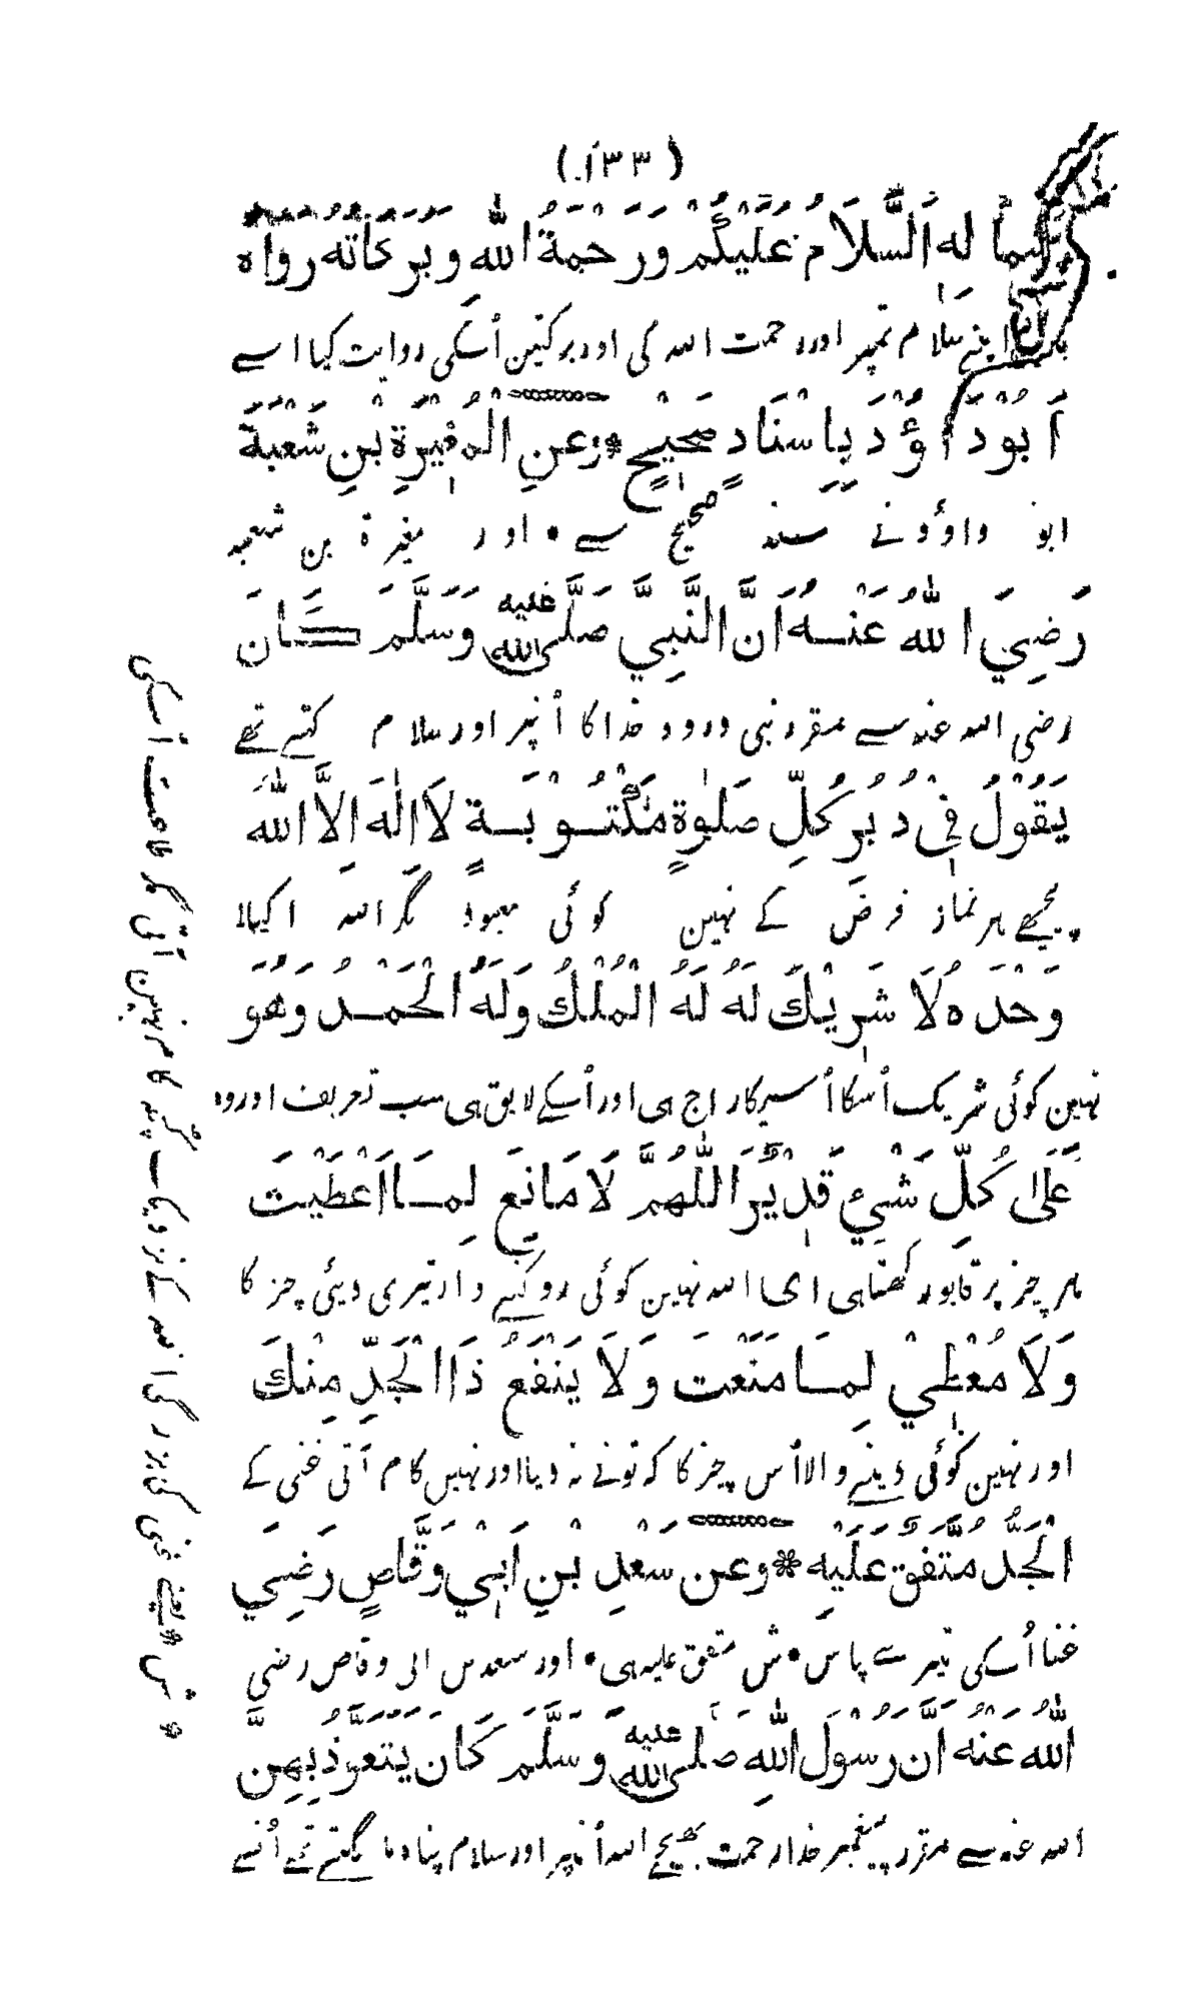 (۱۳۳)
له اَلسَّلَامُ عَلَيْكُمْ وَرَحْمَةُ اللهِ وَبَرَكَاتُه رواه
سلام تمپر اور رحمت الله كی اور بركتين اُسكی روايت كيا اسے
اَبُوْدَاؤُدَ بِاِسْنَادٍ صَحِيْحٍ * وَعَنِ الْمُغِيْرَةِ بْنِ شُعْبَةَ
ابو داؤد نے سند صحيح سے • اور مغيرة بن شعبه
رَضِيَ اللهُ عَنْهُ اَنَّ النَّبِيَّ صَلَّى الله عليه وَسَلَّمَ كَانَ
رضی الله عنه سے مقرر نبی درود خدا كا اُنپر اور سلام كہتے تھے
يَقُوْلُ فِيْ دُبُرِ كُلِّ صَلٰوةٍ مَكْتُوْبَةٍ لَا اِلٰهَ اِلَّا اللهُ
پيچھے ہر نماز فرض كے نہين كوئی معبود مگر الله اكيلا
وَحْدَه لَا شَرِيْكَ لَهُ لَهُ الْمُلْكُ وَلَهُ الْحَمْدُ وَهُوَ
نہين كوئی شريك اُسكا اُسيكا راج ہی اور اُسكے لايق ہی سب تعريف اور وہ
عَلَى كُلِّ شَيْءٍ قَدِيْرٌ اَللّٰهُمَّ لَا مَانِعَ لِمَا اَعْطَيْتَ
ہر چيز پر قابو ركھتا ہی ای الله نہين كوئی روكنے والا تيری ديئی چيز كا
وَلَا مُعْطِيَ لِمَا مَنَعْتَ وَلَا يَنْفَعُ ذَا الْجَدِّ مِنْكَ
اور نہين كوئی دينے والا اُس چيز كا كه تونے نه ديا اور نہيں كام آتی غنی كے
الْجَدُّ مُتَّفَقٌ عَلَيْهِ * وعن سَعْدِ بْنِ اَبِيْ وَقَّاصٍ رَضِيَ
غنا اُسكی تيرے پاس • ش متفق عليه ہی • اور سعد بن ابی وقاص رضی
اللهُ عَنْهُ اَنَّ رَسُوْلَ اللهِ صَلَّى الله عليه وَسَلَّمَ كَانَ يَتَعَوَّذُ بِهِنَّ
الله عنه سے مقرر پيغمبر خدا رحمت بھيجے الله اُنپر اور سلام پناه مانگتے تھے اُنسے
* ش * يعنے غنی كی بزرگی الله كے نزديك كچھ كام نہين آتی مگر طاعت اُسكی